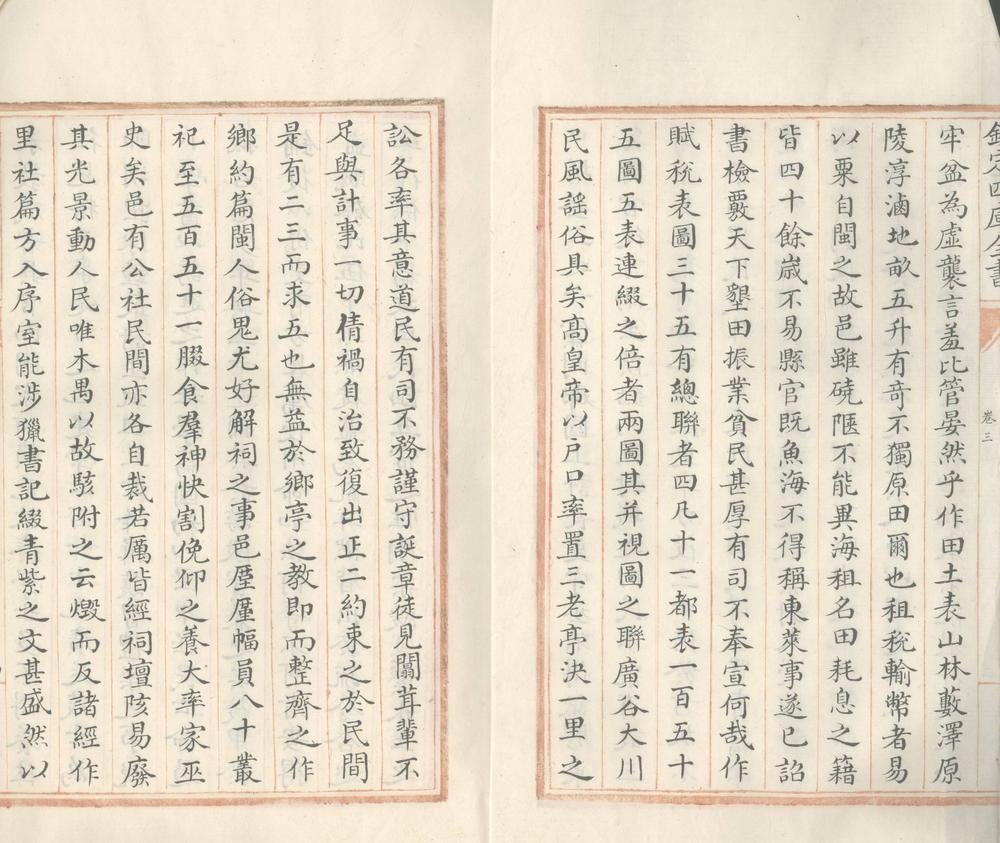 欽定四庫全書
卷三
牢盆為虛襲言羞比管晏然乎作田土表山林藪澤原
陵淳滷地畝五升有奇不獨原田爾也租稅輸幣者易
以粟自閩之故邑雖磽陿不能異海租名田耗息之籍
皆四十餘嵗不易縣官既魚海不得稱東萊事遂已詔
書檢覈天下墾田振業貧民甚厚有司不奉宣何哉作
賦稅表圖三十五有總聯者四凡十一都表一百五十
五圖五表連綴之倍者兩圖其并視圖之聯廣谷大川
民風謡俗具矣髙皇帝以户口率置三老亭決一里之
訟各率其意道民有司不務謹守誕章徒見闒茸輩不
足與計事一切倩禍自治致復出正二約束之於民間
是有二三而求五也無益於鄉亭之教即而整齊之作
鄉約篇閩人俗鬼尤好解祠之事邑壓厪幅員八十叢
祀至五百五十一腏食羣神快割俛仰之養大率家巫
史矣邑有公社民間亦各自裁若厲皆經祠壇陔易廢
其光景動人民唯木禺以故駭附之云燬而反諸經作
里社篇方入序室能涉獵書記綴青紫之文甚盛然以